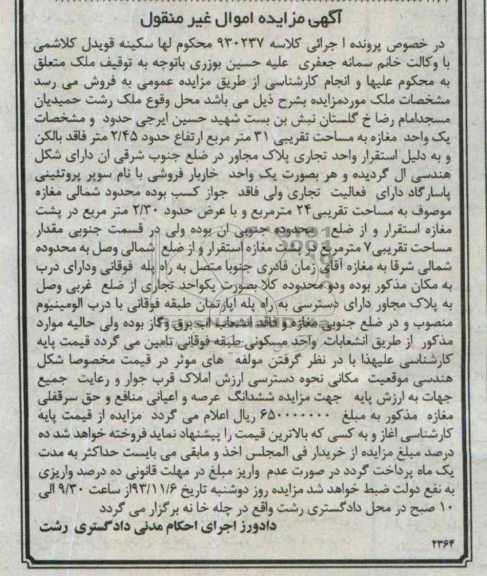 آگهی مزایده اموال غیر منقول
در خصوص پرونده ا جرائی کلاسه ۹۳۰۲۳۷ محکوم لها سکینه قویدل کلاشمی
با وکالت خانم سمانه جعفری علیه حسین بوزری باتوجه به توقیف ملک متعلق
به محکوم علیها و انجام کارشناسی از طریق مزایده عمومی به فروش می رسد
مشخصات ملک موردمزایده بشرح ذیل می باشد محل وقوع ملک رشت حمیدیان
مسجدامام رضا خ گلستان نبش بن بست شهید حسین ایرجی حدود و مشخصات
یک واحد مغازه به مساحت تقریبی ۳۱ متر مربع ارتفاع حدود ۲/۴۵ متر فاقد بالکن
و به دلیل استقرار واحد تجاری پلاک مجاور در ضلع جنوب شرقی ان دارای شکل
هندسی ال گردیده و هر بصورت یک واحد خاربار فروشی با نام سوپر پروتئینی
پاسارگاد دارای فعالیت تجاری ولی فاقد جواز کسب بوده محدود شمالی مغازه
موصوف به مساحت تقریبی۲۴ مترمربع و با عرض حدود ۲/۳۰ متر مربع در پشت
مغازه استقرار و از ضلع محدوده جنوبی ان بوده ولی در قسمت جنوبی مقدار
مساحت تقریبی۷ مترمربع در پشت مغازه استقرار و از ضلع شمالی وصل به محدوده
شمالی شرقا به مغازه آقای زمان قادری جنوبا متصل به راه پله فوقانی ودارای درب
به مکان مذکور بوده ودو محدوده کلا بصورت یکواحد تجاری از ضلع غربی وصل
به پلاک مجاور دارای دسترسی به راه پله اپارتمان طبقه فوقانی با درب الومینیوم
منصوب و در ضلع جنوبی مغازه و فاقد انشعاب اب برق وگاز بوده ولی حالیه موارد
مذکور از طریق انشعابات واحد مسکونی طبقه فوقانی تامین می گردد قیمت پایه
کارشناسی علیهذا با در نظر گرفتن مولفه های موثر در قیمت مخصوصا شکل
هندسی موقعیت مکانی نحوه دسترسی ارزش املاک قرب جوار و رعایت جمیع
جهات به ارزش پایه جهت مزایده ششدانگ عرصه و اعیانی منافع و حق سرقفلی
مغازه مذکور به مبلغ ۶۵۰۰۰۰۰۰۰ ریال اعلام می گردد مزایده از قیمت پایه
کارشناسی اغاز و به کسی که بالاترین قیمت را پیشنهاد نماید فروخته خواهد شد ده
درصد مبلغ مزایده از خریدار فی المجلس اخذ و مابقی می بایست حداکثر به مدت
یک ماه پرداخت گردد در صورت عدم واریز مبلغ در مهلت قانونی ده درصد واریزی
به نفع دولت ضبط خواهد شد مزایده روز دوشنبه تاریخ ۹۳/۱۱/۶از ساعت ۹/۳۰ الی
۱۰ صبح در محل دادگستری رشت واقع در چله خا نه برگزار می گردد
دادورز اجرای احکام مدنی دادگستری رشت
۲۳۶۴